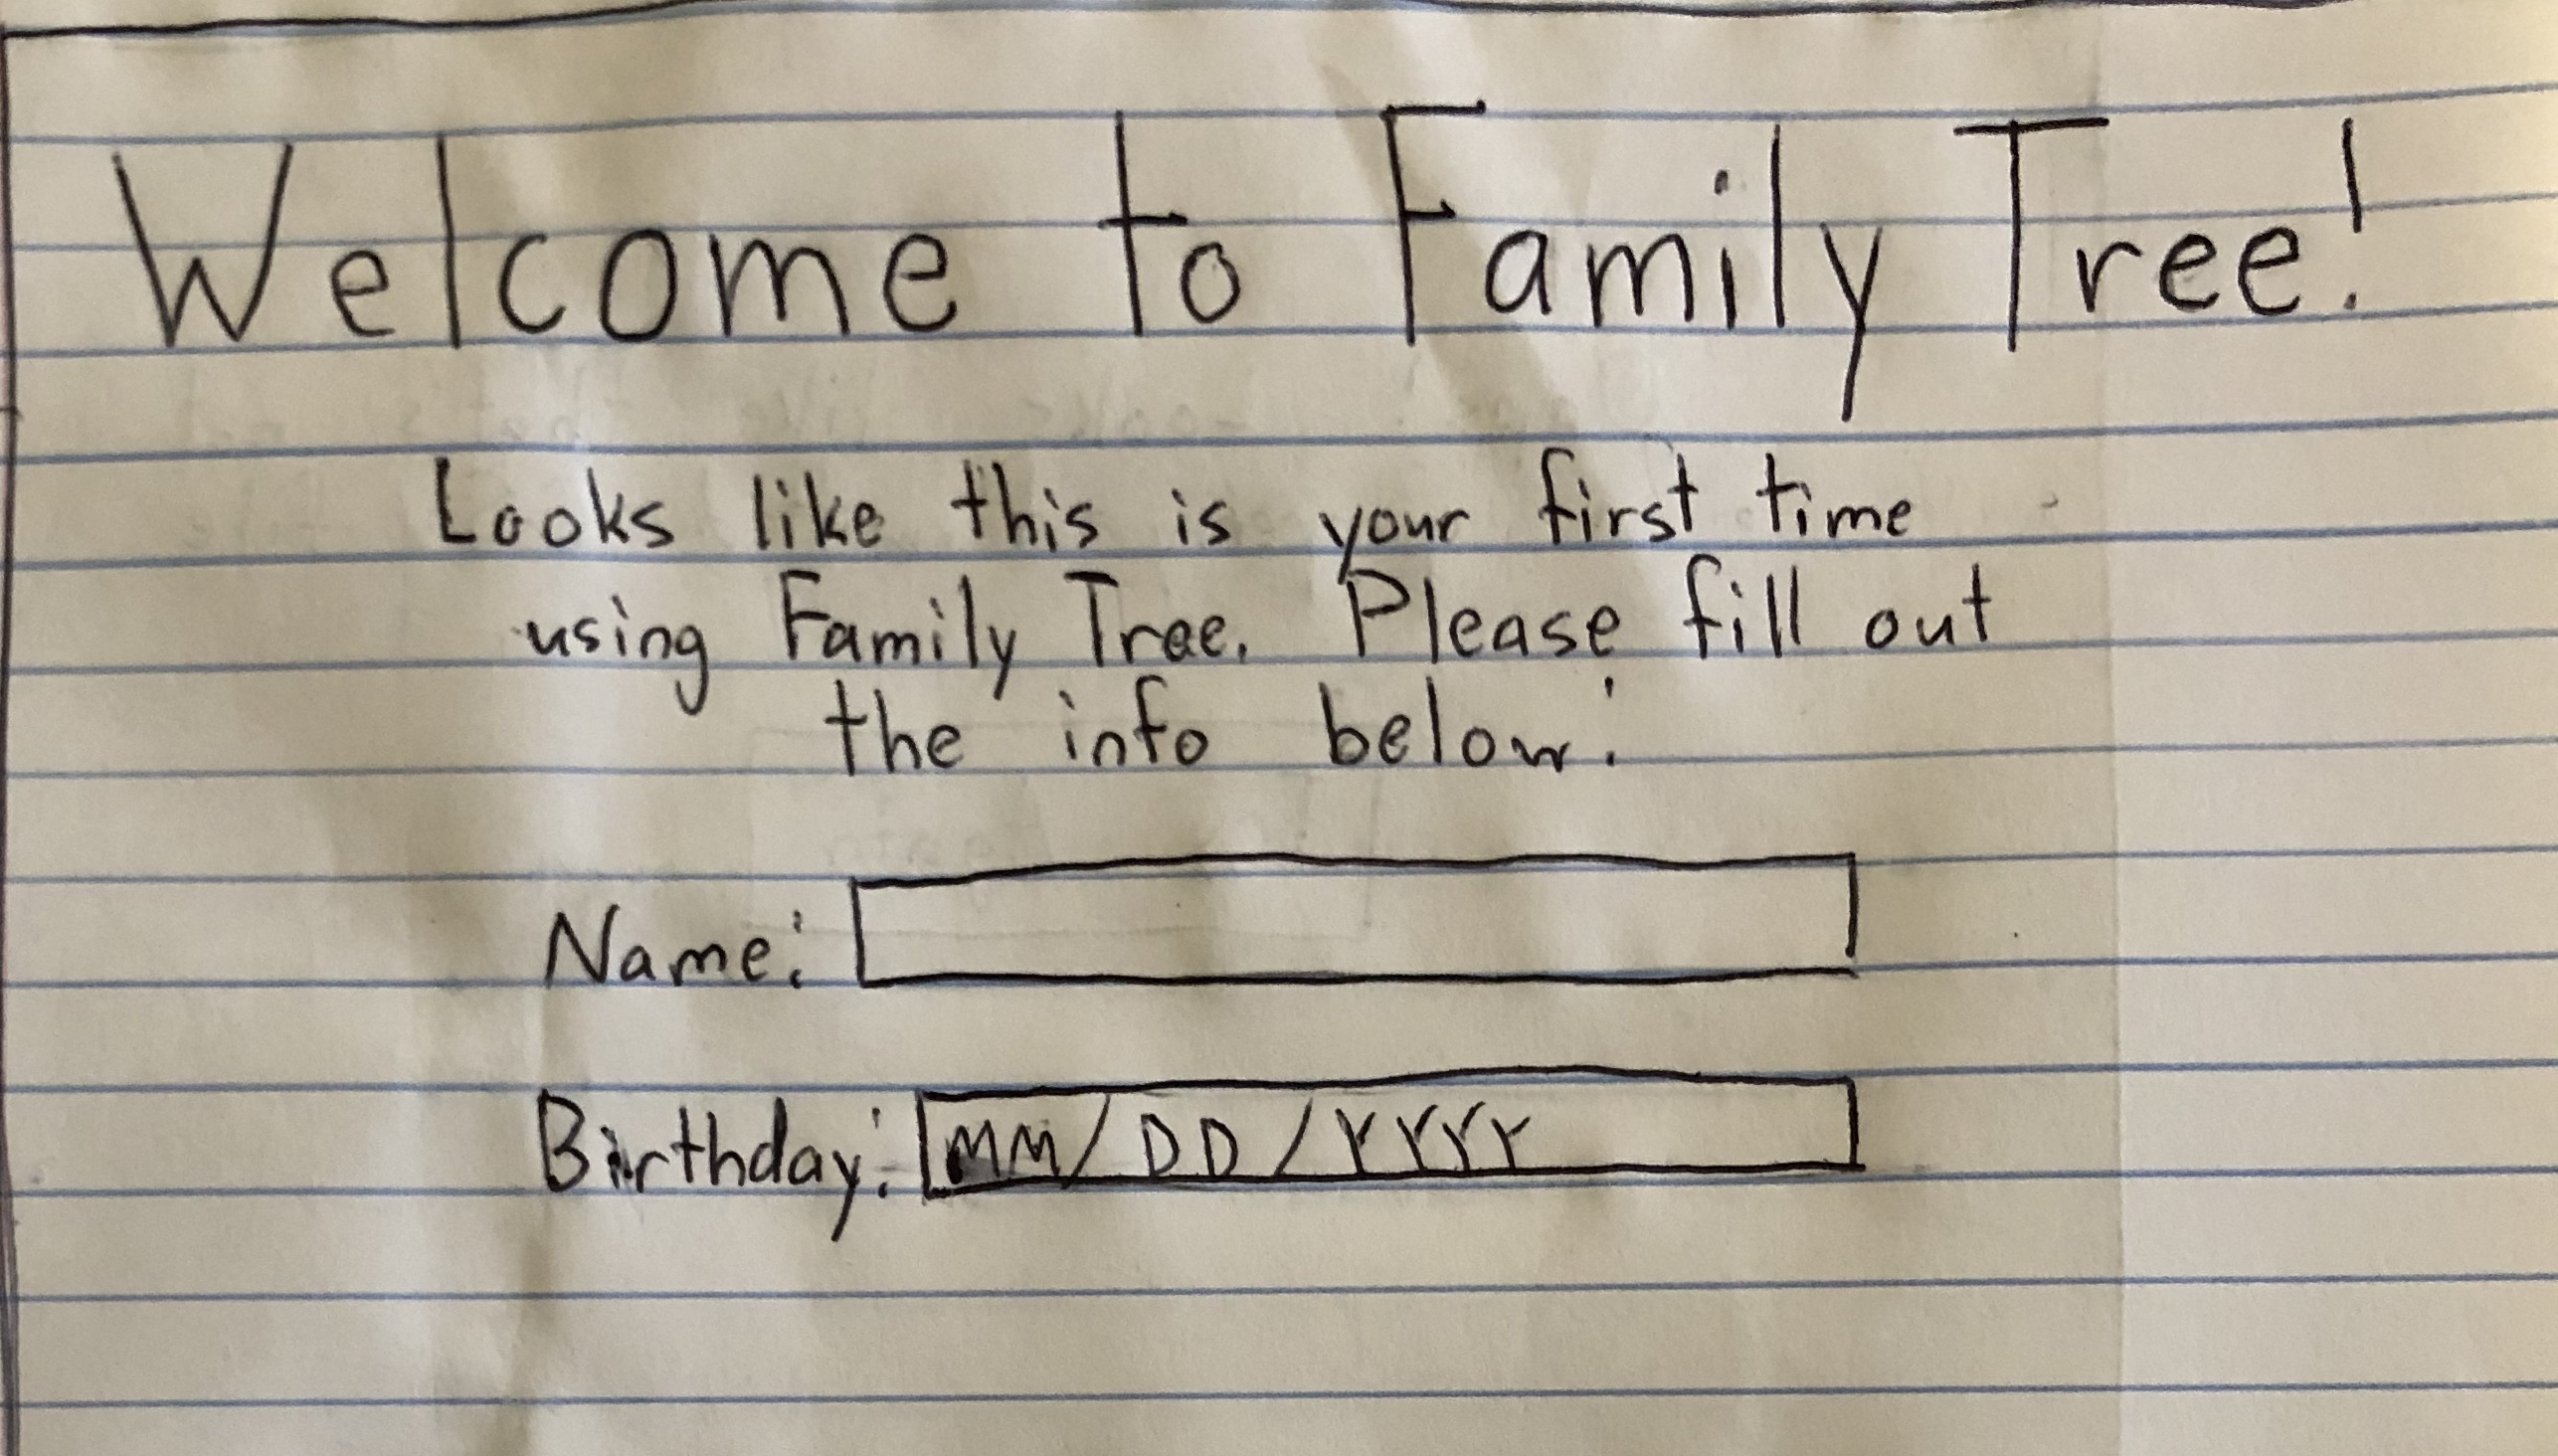 Welcome to Family Tree!
Looks like this is your first time
using Family Tree. Please fill out
the info below:
Name:
Birthday: MM/DD/YYYY